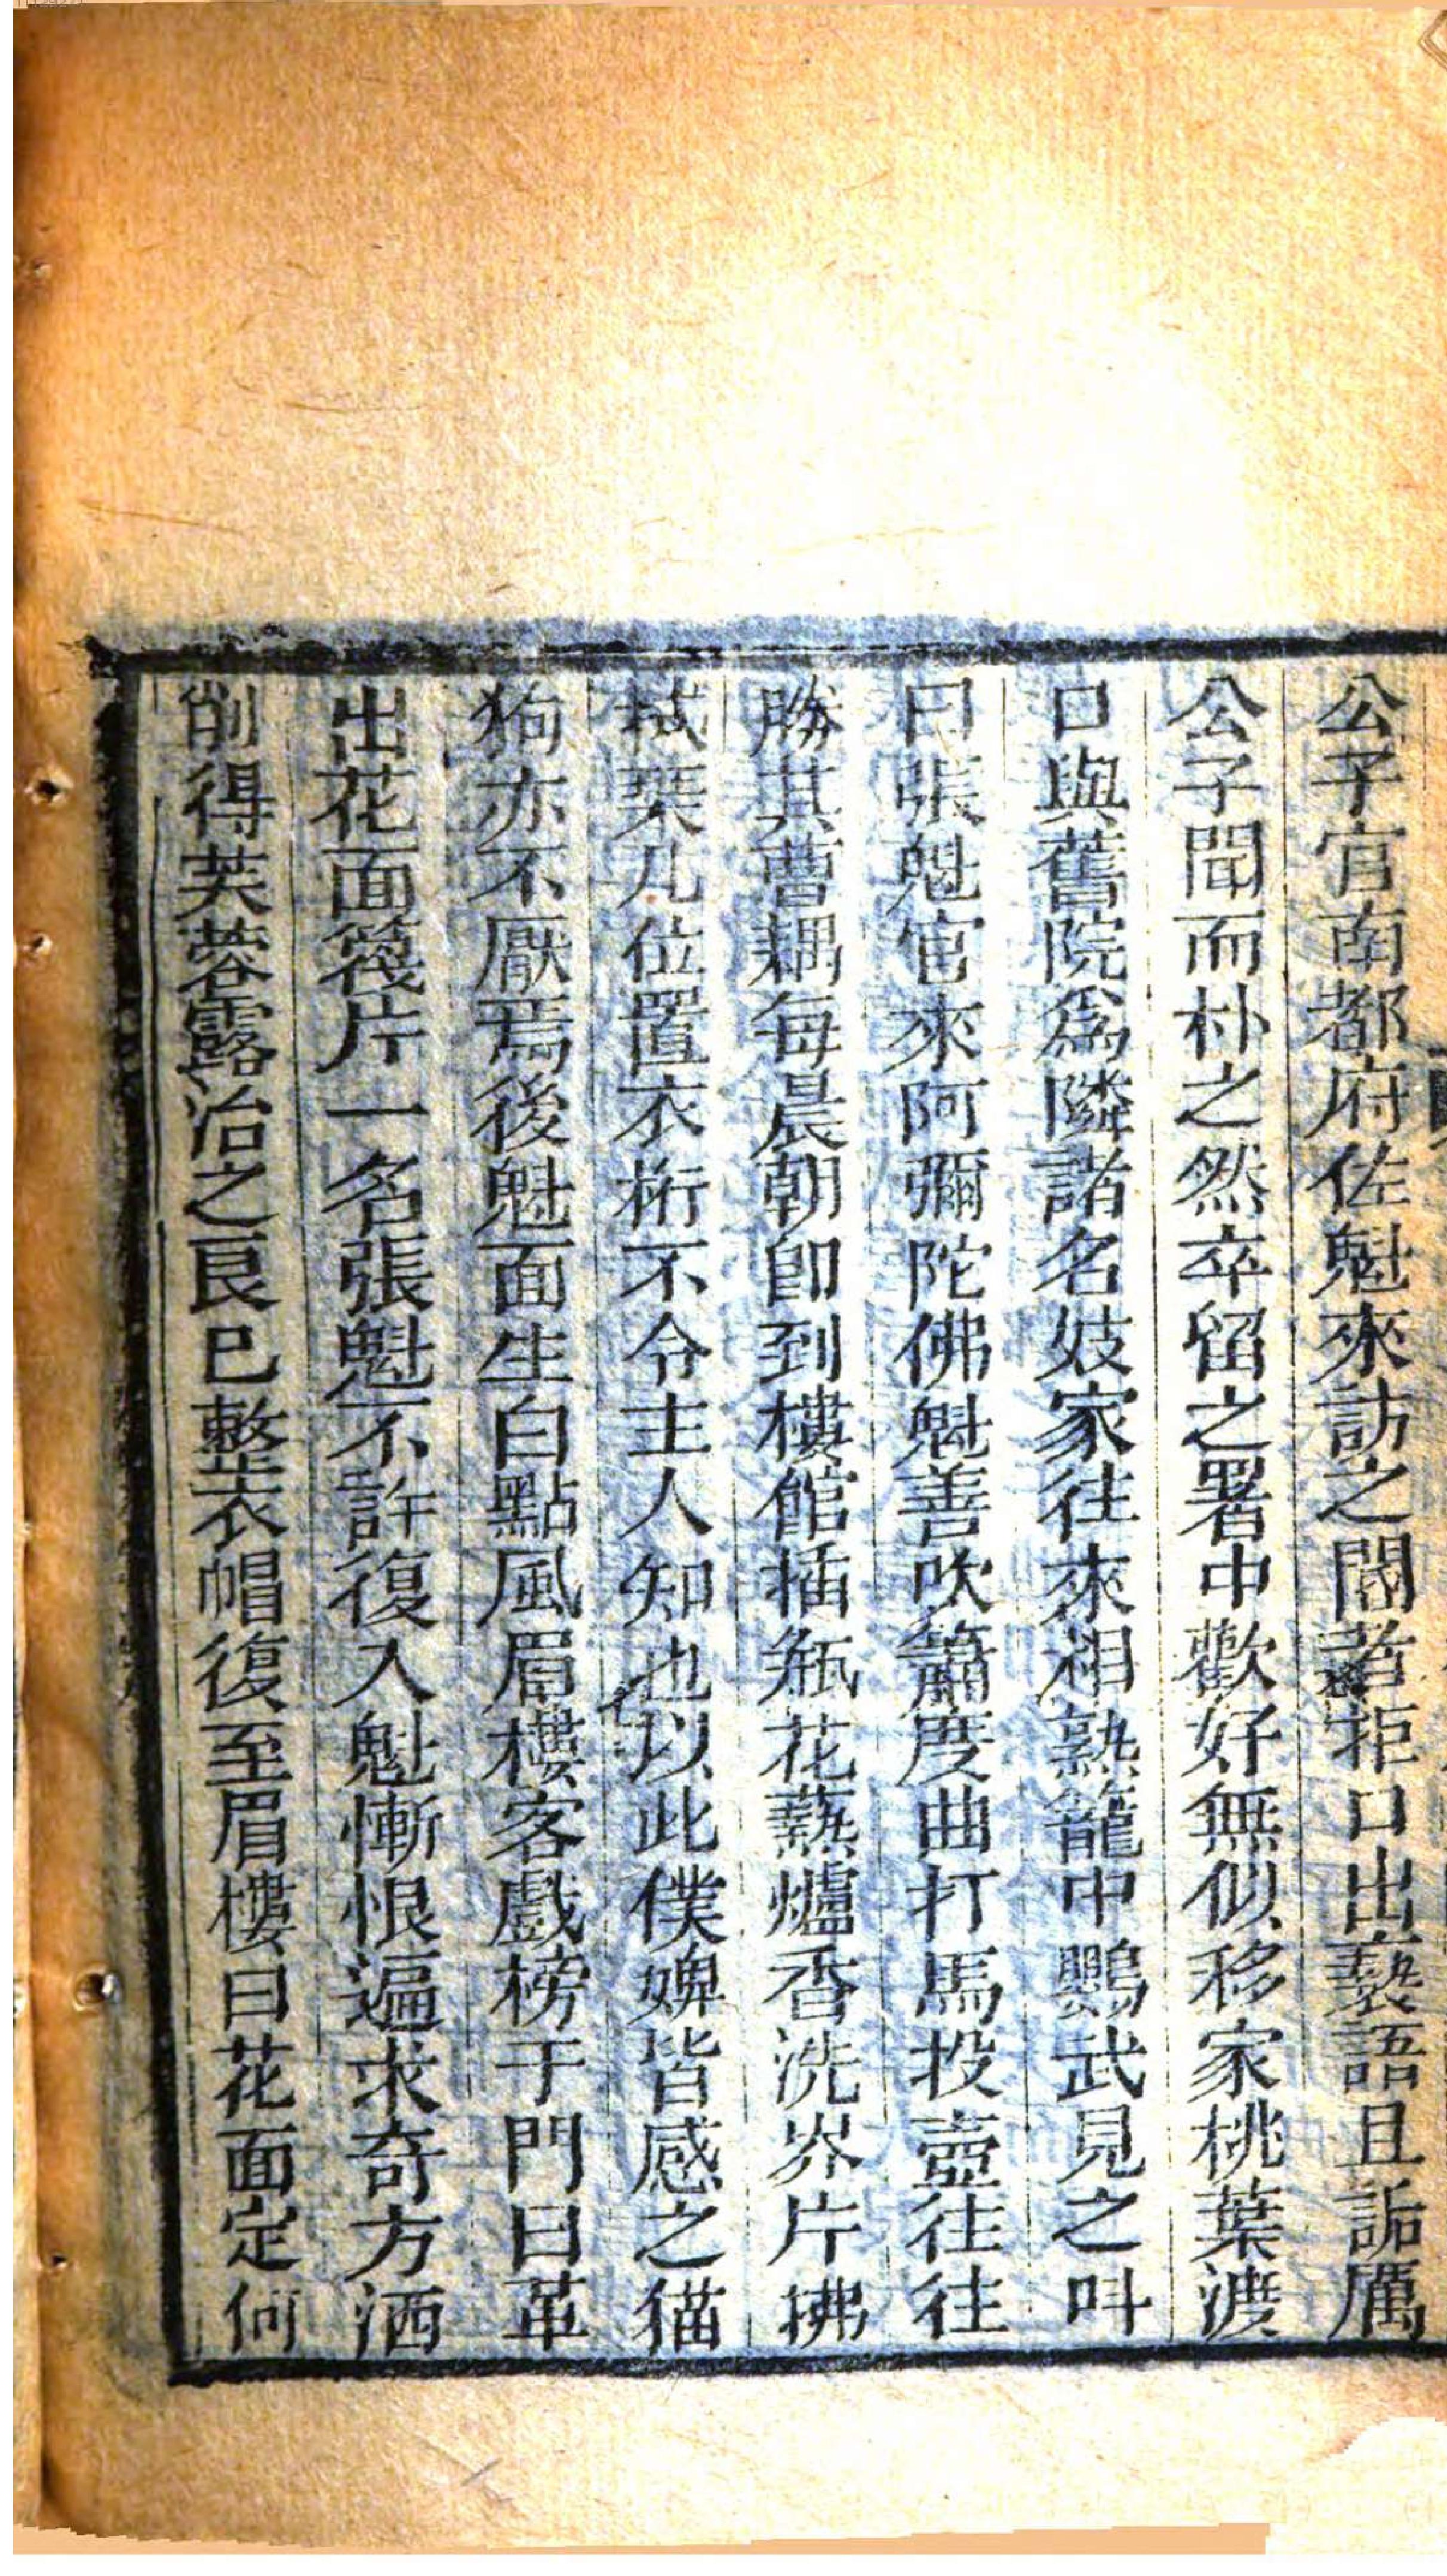 公子官南都府佐魁來訪之閽者拒口出褻語且詬厲
公子聞而朴之然卒留之署中歡好無似移家桃葉渡
口與舊院爲隣諸名妓家往來相熟籠中鸚武見之叫
曰張魁官來阿彌陀佛魁善吹簫度曲打馬投壺往往
勝其曹耦每晨朝卽到樓館插甁花爇爐香洗岕片拂
拭琹几位置衣桁不令主人知也以此僕婢皆感之猫
狗亦不厭焉後魁面生白點風眉樓客戲榜于門曰革
出花面篾片一名張魁不許復入魁慚恨遍求奇方洒
削得芙蓉露治之良已整衣帽復至眉樓曰花面定何